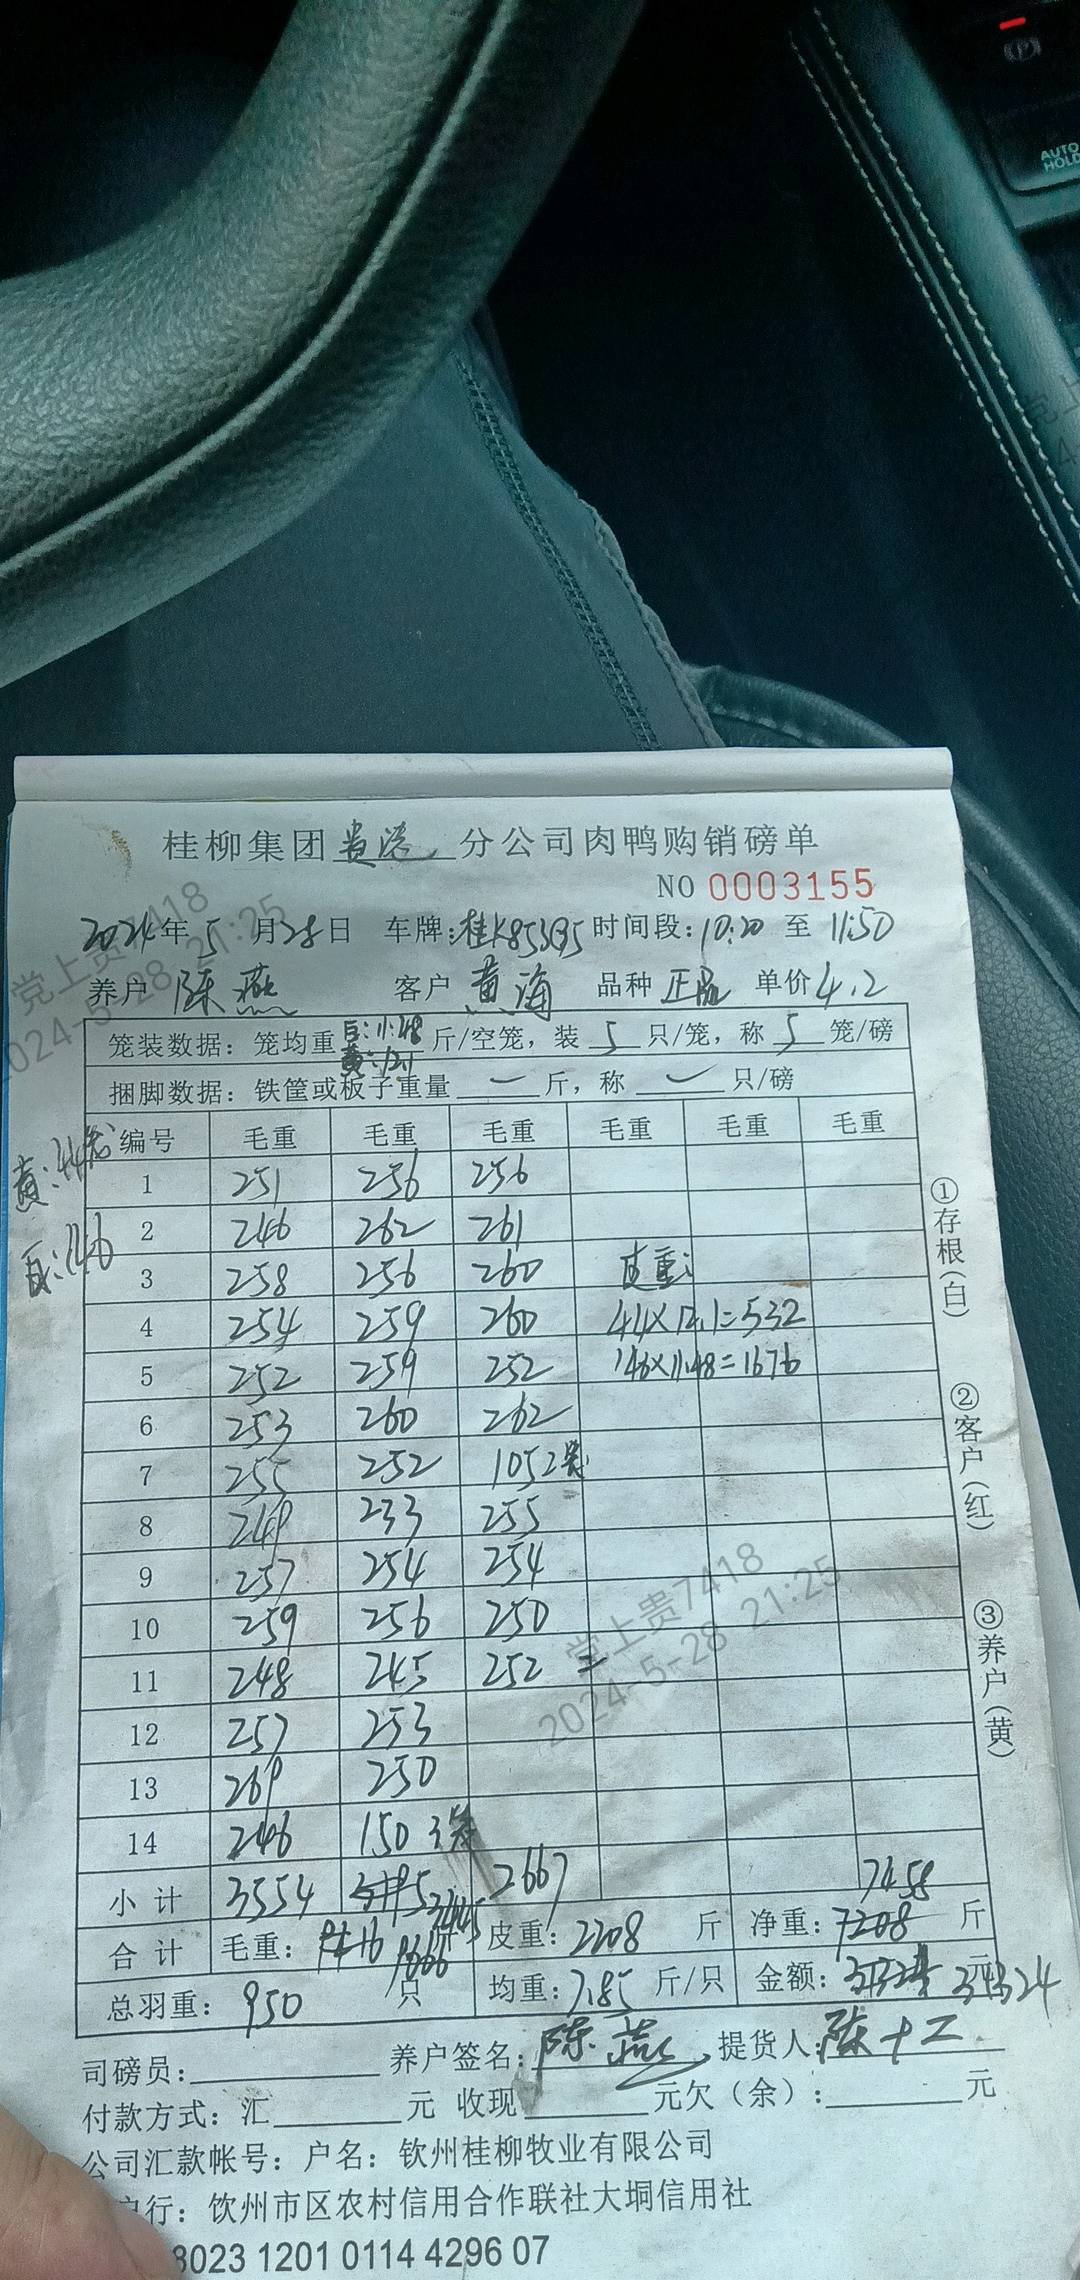 AUTO
HOLD
桂柳集团贵港分公司肉鸭购销磅单
NO 0003155
2024年5月28日 车牌: 时间段:10:20 至 11:50
养户 陈燕 客户 黄海 品种 正品 单价 4.2
笼装数据:笼均重 白:11.48 黄:12.1 斤/空笼,装 5 只/笼,称 5 笼/磅
捆脚数据:铁筐或板子重量 — 斤,称 只/磅
编号 毛重 毛重 毛重 毛重 毛重 毛重
1 251 256 256
2 246 262 261
3 258 256 260 皮重:
4 254 259 260 44×12.1=532
5 252 259 252 146×11.48=1676
6 253 260 262
7 255 252 105 2笼
8 249 233 255
9 257 254 254
10 259 256 250
11 248 245 252 =
12 257 253
13 269 250
14 246 150 3笼
小计 3554 3445 2667
7458
合计 毛重: 9666 皮重:2208 斤 净重: 斤
总羽重: 950 只 均重:7.85 斤/只 金额: 元
司磅员: 养户签名:陈燕 提货人:陈十二
付款方式:汇 元 收现 元欠(余): 元
公司汇款帐号:户名:钦州桂柳牧业有限公司
户行:钦州市区农村信用合作联社大垌信用社
8023 1201 0114 4296 07
黄:44笼
白:146
①存根(白)
②客户(红)
③养户(黄)
党上贵7418
2024-5-28 21:25
党上贵7418
2024-5-28 21:25